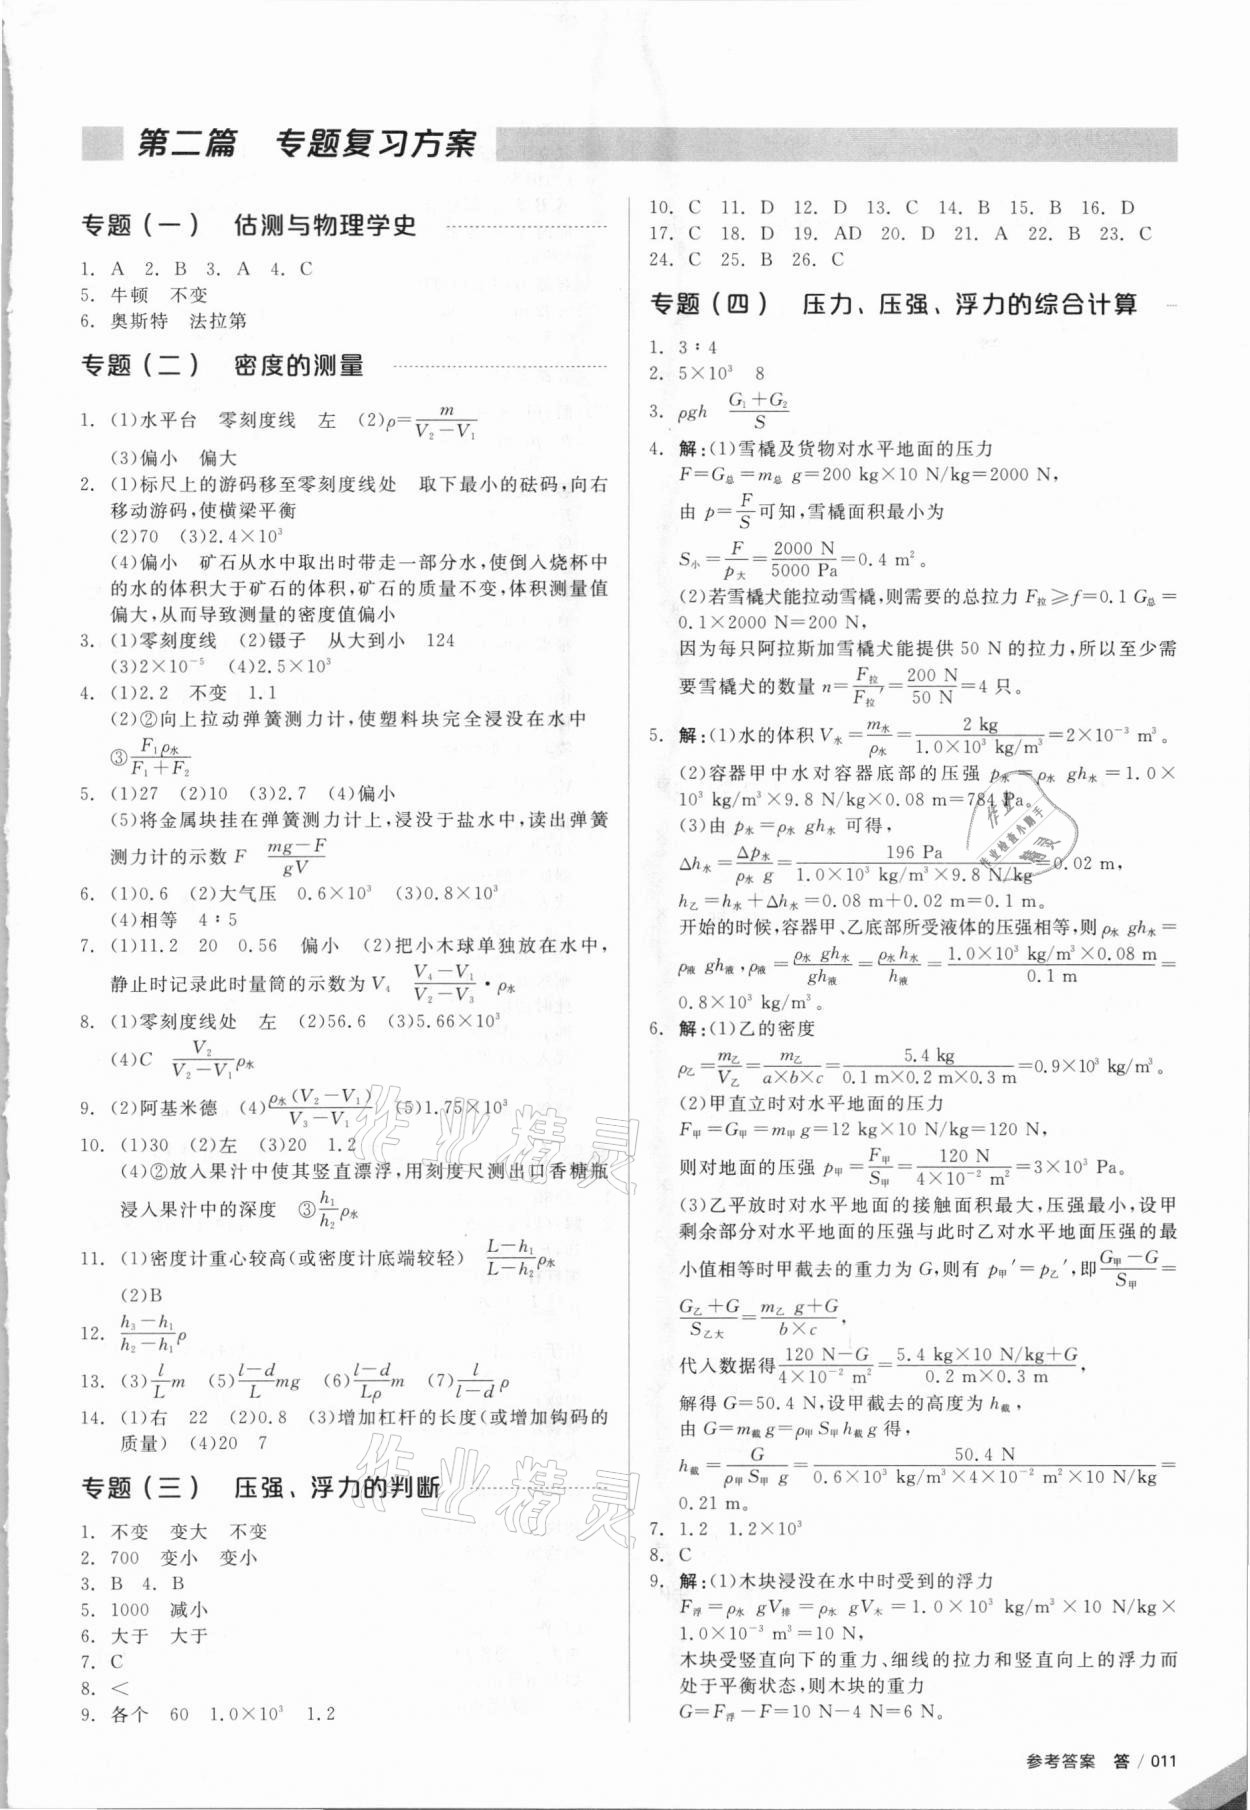 第二篇　专题复习方案
专题(一)　估测与物理学史
1. A 2. B 3. A 4. C
5. 牛顿　不变
6. 奥斯特　法拉第
专题(二)　密度的测量
1. (1)水平台　零刻度线　左　(2)ρ=m/(V₂-V₁)
(3)偏小　偏大
2. (1)标尺上的游码移至零刻度线处　取下最小的砝码,向右
移动游码,使横梁平衡
(2)70　(3)2.4×10³
(4)偏小　矿石从水中取出时带走一部分水,使倒入烧杯中
的水的体积大于矿石的体积,矿石的质量不变,体积测量值
偏大,从而导致测量的密度值偏小
3. (1)零刻度线　(2)镊子　从大到小　124
(3)2×10⁻⁵　(4)2.5×10³
4. (1)2.2　不变　1.1
(2)②向上拉动弹簧测力计,使塑料块完全浸没在水中
③F₁ρ水/(F₁+F₂)
5. (1)27　(2)10　(3)2.7　(4)偏小
(5)将金属块挂在弹簧测力计上,浸没于盐水中,读出弹簧
测力计的示数 F　(mg-F)/gV
6. (1)0.6　(2)大气压　0.6×10³　(3)0.8×10³
(4)相等　4∶5
7. (1)11.2　20　0.56　偏小　(2)把小木球单独放在水中,
静止时记录此时量筒的示数为 V₄　(V₄-V₁)/(V₂-V₃)·ρ水
8. (1)零刻度线处　左　(2)56.6　(3)5.66×10³
(4)C　V₂/(V₂-V₁)ρ水
9. (2)阿基米德　(4)ρ水(V₂-V₁)/(V₃-V₁)　(5)1.75×10³
10. (1)30　(2)左　(3)20　1.2
(4)②放入果汁中使其竖直漂浮,用刻度尺测出口香糖瓶
浸入果汁中的深度　③h₁/h₂ρ水
11. (1)密度计重心较高(或密度计底端较轻)　(L-h₁)/(L-h₂)ρ水
(2)B
12. (h₃-h₁)/(h₂-h₁)ρ
13. (3)l/L m　(5)(l-d)/L mg　(6)(l-d)/Lρ m　(7)l/(l-d) ρ
14. (1)右　22　(2)0.8　(3)增加杠杆的长度(或增加钩码的
质量)　(4)20　7
专题(三)　压强、浮力的判断
1. 不变　变大　不变
2. 700　变小　变小
3. B 4. B
5. 1000　减小
6. 大于　大于
7. C
8. <
9. 各个　60　1.0×10³　1.2
10. C 11. D 12. D 13. C 14. B 15. B 16. D
17. C 18. D 19. AD 20. D 21. A 22. B 23. C
24. C 25. B 26. C
专题(四)　压力、压强、浮力的综合计算
1. 3∶4
2. 5×10³　8
3. ρgh　(G₁+G₂)/S
4. 解:(1)雪橇及货物对水平地面的压力
F=G总=m总 g=200 kg×10 N/kg=2000 N,
由 p=F/S可知,雪橇面积最小为
S小=F/p大=2000 N/5000 Pa=0.4 m²。
(2)若雪橇犬能拉动雪橇,则需要的总拉力 F拉≥f=0.1 G总=
0.1×2000 N=200 N,
因为每只阿拉斯加雪橇犬能提供 50 N 的拉力,所以至少需
要雪橇犬的数量 n=F拉/F拉′=200 N/50 N=4 只。
5. 解:(1)水的体积 V水=m水/ρ水=2 kg/(1.0×10³ kg/m³)=2×10⁻³ m³。
(2)容器甲中水对容器底部的压强 p水=ρ水 gh水=1.0×
10³ kg/m³×9.8 N/kg×0.08 m=784 Pa。
(3)由 p水=ρ水 gh水 可得,
Δh水=Δp水/(ρ水 g)=196 Pa/(1.0×10³ kg/m³×9.8 N/kg)=0.02 m,
h乙=h水+Δh水=0.08 m+0.02 m=0.1 m。
开始的时候,容器甲、乙底部所受液体的压强相等,则 ρ水 gh水=
ρ液 gh液,ρ液=ρ水 gh水/gh液=ρ水h水/h液=(1.0×10³ kg/m³×0.08 m)/0.1 m=
0.8×10³ kg/m³。
6. 解:(1)乙的密度
ρ乙=m乙/V乙=m乙/(a×b×c)=5.4 kg/(0.1 m×0.2 m×0.3 m)=0.9×10³ kg/m³。
(2)甲直立时对水平地面的压力
F甲=G甲=m甲 g=12 kg×10 N/kg=120 N,
则对地面的压强 p甲=F甲/S甲=120 N/(4×10⁻² m²)=3×10³ Pa。
(3)乙平放时对水平地面的接触面积最大,压强最小,设甲
剩余部分对水平地面的压强与此时乙对水平地面压强的最
小值相等时甲截去的重力为 G,则有 p甲′=p乙′,即(G甲-G)/S甲=
(G乙+G)/S乙大=(m乙 g+G)/(b×c),
代入数据得(120 N-G)/(4×10⁻² m²)=(5.4 kg×10 N/kg+G)/(0.2 m×0.3 m),
解得 G=50.4 N,设甲截去的高度为 h截,
由 G=m截 g=ρ甲 S甲 h截 g 得,
h截=G/(ρ甲 S甲 g)=50.4 N/(0.6×10³ kg/m³×4×10⁻² m²×10 N/kg)=
0.21 m。
7. 1.2　1.2×10³
8. C
9. 解:(1)木块浸没在水中时受到的浮力
F浮=ρ水 gV排=ρ水 gV木=1.0×10³ kg/m³×10 N/kg×
1.0×10⁻³ m³=10 N,
木块受竖直向下的重力、细线的拉力和竖直向上的浮力而
处于平衡状态,则木块的重力
G=F浮-F=10 N-4 N=6 N。
作业精灵
作业精灵
作业检查小助手
参考答案　答 / 011